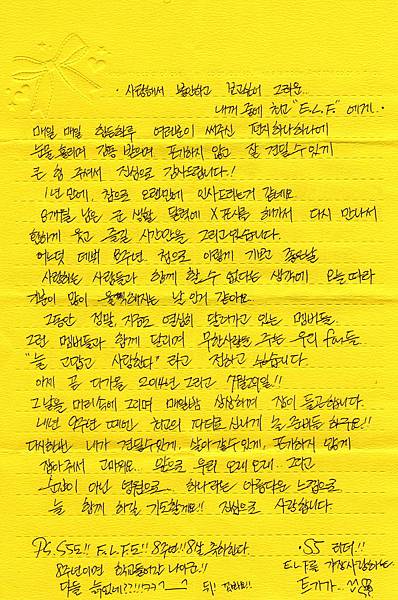 · 사랑해서 불안하고 보고싶어 그리운..
내꺼 중에 최고 "E.L.F." 에게..
매일 매일 힘든하루 여러분이 써주신 편지하나하나에
눈물 흘리며 감동 받으며 포기하지 않고 잘 견딜 수 있게
큰 힘 주셔서 진심으로 감사드립니다!
1년 만에, 참으로 오랜만에 인사드리는거 같네요
9개월 남은 군 생활 달력에 X표시를 해가며 다시 만나서
함께 웃고 즐길 시간만을 그리고있습니다.
어느덧 데뷔 8주년 참으로 이렇게 기쁘고 좋은날
사랑하는 사람들과 함께 할 수 없다는 생각에 오늘따라
맘이 많이 해지는 날 인거 같아요
그동안 정말, 지금도 열심히 달려가고 있는 멤버들.
그런 멤버들과 함께 달리며 무한사랑을 주는 우리 fan들
"늘 고맙고 사랑한다" 라고 전하고 싶습니다.
이제 곧 다가올 2014년 그리고 7월29일!!
그날을 머리속에 그리며 매일밤 상상하며 잠이 들곤합니다.
내년 9주년 때에는 최고의 파티로 신나게 놀 준비들 하구요!!
다시한번 내가 견딜수있게, 살아갈수있게, 포기하지 않게
잡아줘서 고마워요.. 앞으로 우리 오래 오래.. 그리고
순간이 아닌 영원으로.. 하나라는 아름다운 느낌으로
늘 함께 하길 기도할께요!! 진심으로 사랑합니다.
PS. SS도!! E.L.F도!! 8주년!! 8살 축하한다.
8주년이면 학교들어갈 나이군!!
다들 늙었네??!!ㅋㅋㅋ ^_^
· SJ 리더!!
E.L.F를 가장사랑하는
특이가..